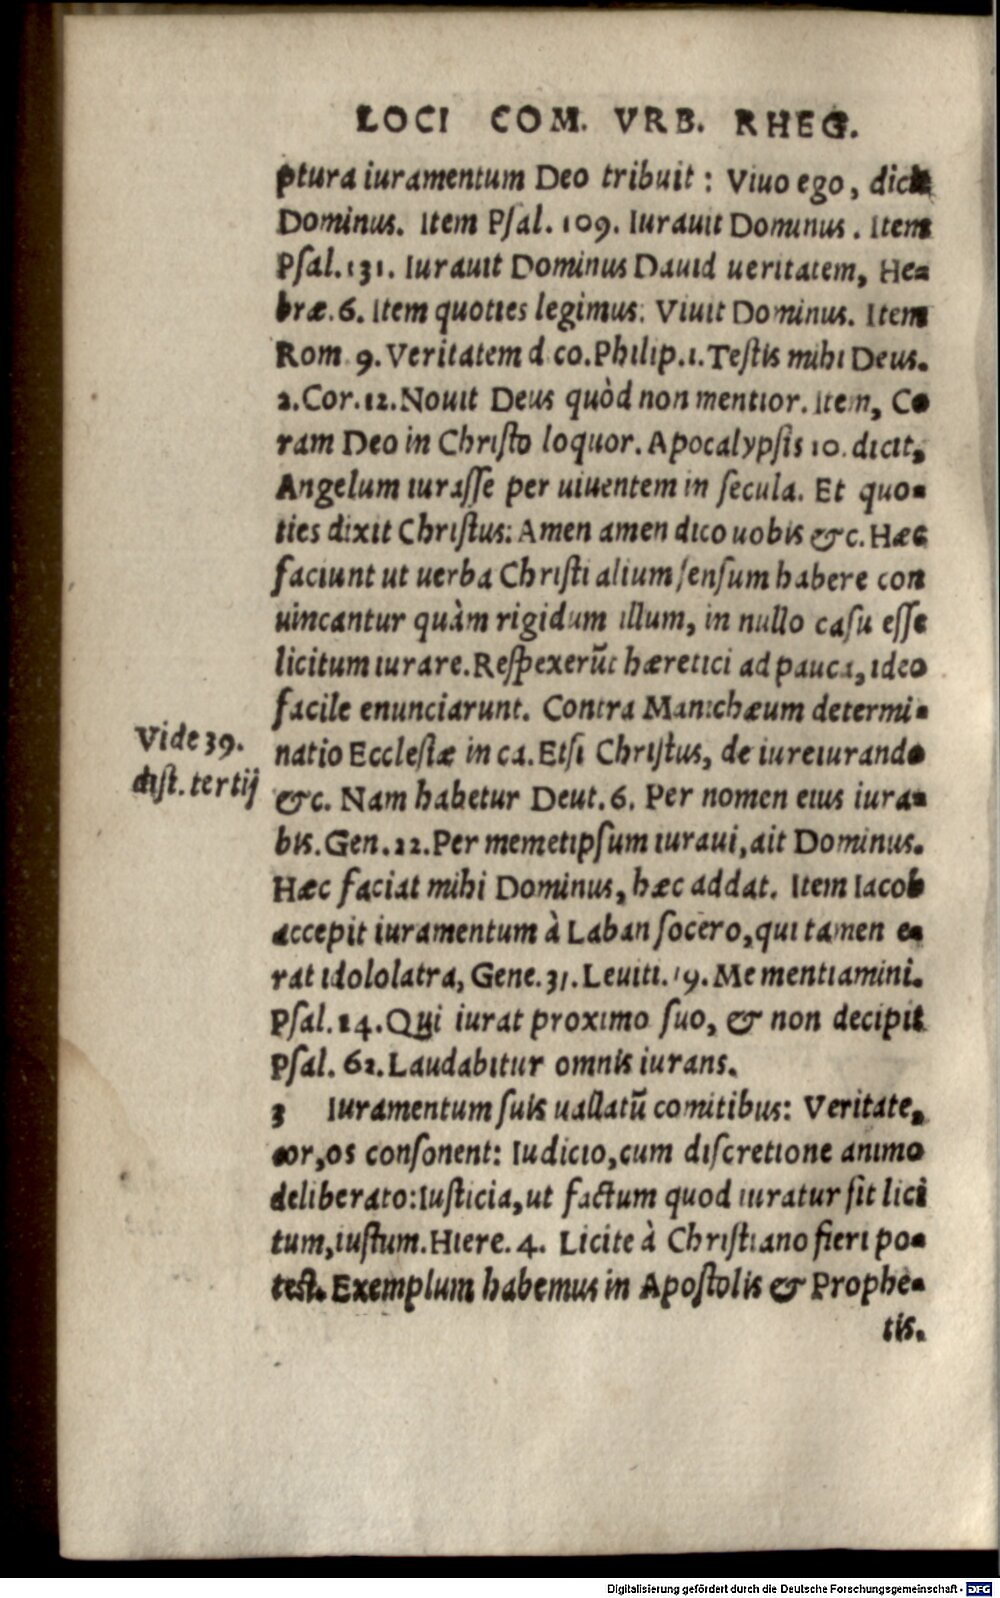 LOCI COM. VRB. RHEG.
ptura iuramentum Deo tribuit : Viuo ego, dicit
Dominus. Item Psal. 109. Iurauit Dominus . Item
Psal. 131. Iurauit Dominus Dauid ueritatem, He-
bræ. 6. Item quoties legimus: Viuit Dominus. Item
Rom 9. Veritatem dico. Philip. 1. Testis mihi Deus.
2. Cor. 12. Nouit Deus quòd non mentior. Item, Co
ram Deo in Christo loquor. Apocalypsis 10. dicit,
Angelum iurasse per uiuentem in secula. Et quo-
ties dixit Christus: Amen amen dico uobis &c. Hæc
faciunt ut uerba Christi alium sensum habere con
uincantur quàm rigidum illum, in nullo casu esse
licitum iurare. Respexerūt hæretici ad pauca, ideo
facile enunciarunt. Contra Manichæum determi-
Vide 39.
natio Ecclesiæ in ca. Etsi Christus, de iureiurando
dist. tertij
&c. Nam habetur Deut. 6. Per nomen eius iura-
bis. Gen. 22. Per memetipsum iuraui, ait Dominus.
Hæc faciat mihi Dominus, hæc addat. Item Iacob
accepit iuramentum à Laban socero, qui tamen e-
rat idololatra, Gene. 31. Leuiti. 19. Me mentiamini.
Psal. 14. Qui iurat proximo suo, & non decipit
Psal. 62. Laudabitur omnis iurans.
3 Iuramentum suis uallatū comitibus: Veritate,
cor, os consonent: Iudicio, cum discretione animo
deliberato: Iusticia, ut factum quod iuratur sit lici
tum, iustum. Hiere. 4. Licite à Christiano fieri po-
test. Exemplum habemus in Apostolis & Prophe-
tis.
Digitalisierung gefördert durch die Deutsche Forschungsgemeinschaft - DFG